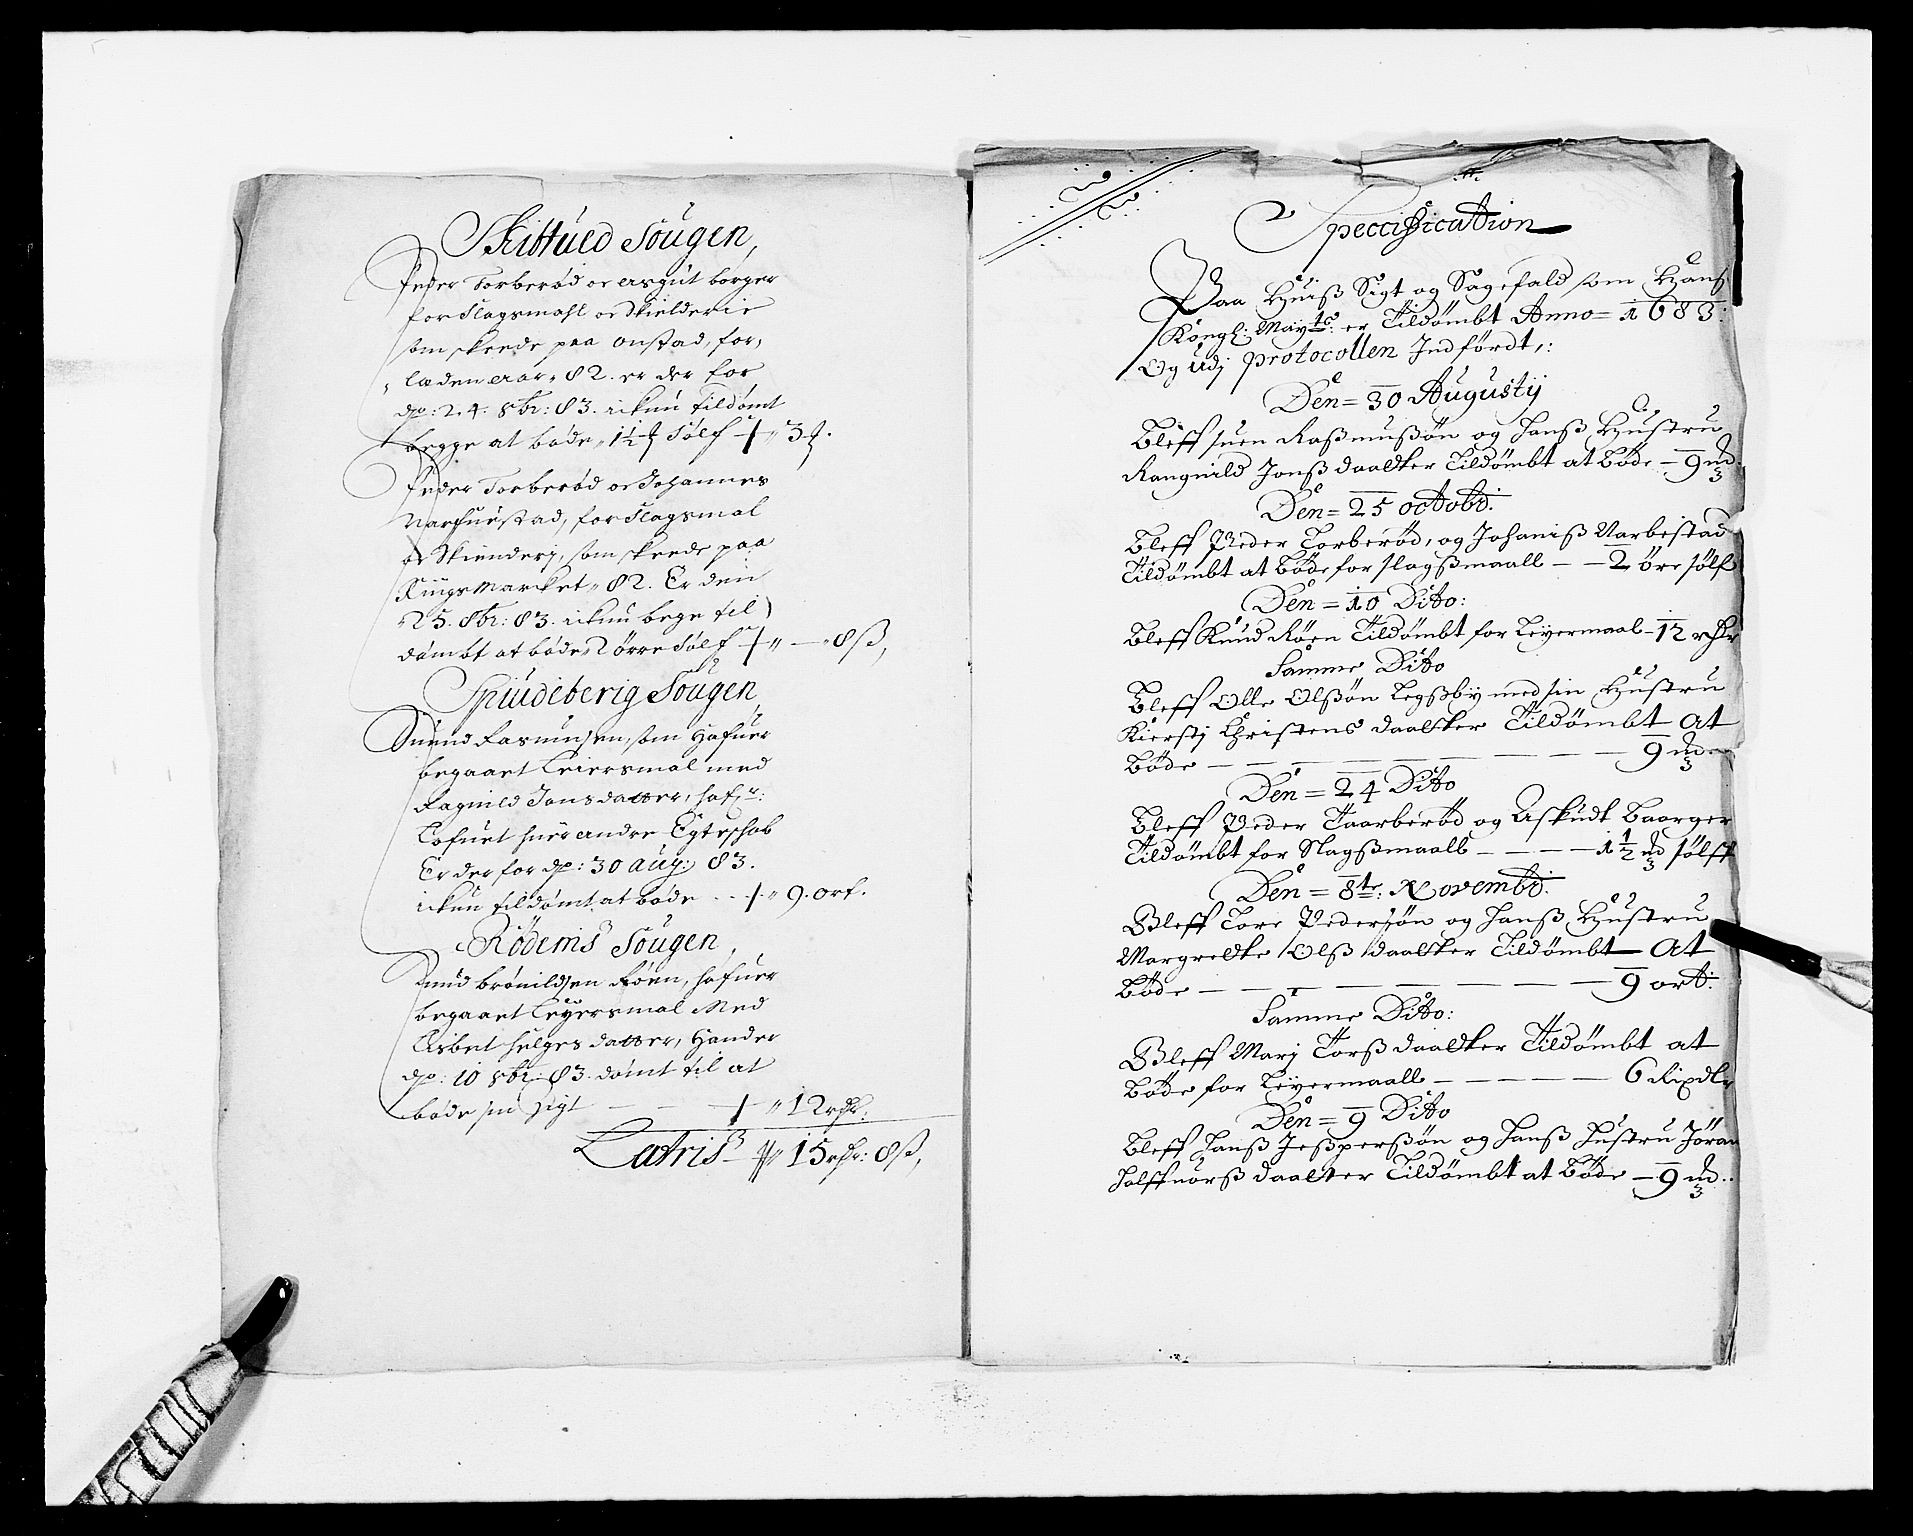 Skittued Sougen,
Peder Torberød oc Asgut borger
for Slagsmahl oc Skielderie
som skeede paa onstad, for,
laden aar " 82. er der for
dP: 24. 8br: 83. ickun tildømt
begge at bøde " 1½ Sølf " 3
Peder Torberød oc Johannes
Narfuestad, for Slagsmal
oc Skienderj, som skeede paa
Kiigs Marcket " 82. Er den
25. 8br: 83. ickun bege til
dømbt at bøde 2 örre Sølf " — " 8 ß,
Spiudeberig Sougen,
Suend Rasmusen, som Hafuer
begaaet Leiersmal med
Ragnild Jonsdatter, haf:
Lofuet huerandre Egteschab
Er der for dP: 30 aug: 83.
ickun tildømt at bøde .. " 9. ort.
Rödenis Sougen,
Knud brönildsen Røen, hafuer
begaaet Leyersmal Med
Lisbet helges datter, Hander
dP: 10 8br: 83. dømt til at
bøde sin sigt — — " 12 rdr:
Latris " 15 rdr: 8 ß,
Speccification
Paa Huiß Sigt og Sagefald som Hans
Kongl: Mayts: er Tildömbt Anno = 1683:
Og udj protocollen Indfördt,:
Den = 30 Augustij
Bleff suen Raßmußön og hanß Hustru
Rangnild Jonß daatter Tildömbt at Böde — 9 md.
Den = 25 octobr:
Bleff Peder Torberöd, og Johaniß Narbestad
Tildömbt at Böde for slagßmaall — — 2 öre sölf
Den = 10 Dito:
Bleff Knud Röen Tildömbt for Leyermaal — 12 rdr
Samme Dito
Bleff Olle Olßön Legßby med sin Hustru
Kierstj Christens daatter Tildömbt at
Böde — — — — — — — 9 md
Den = 24 Dito
Bleff Peder Taarberöd og Askudt Baarger
Tildömbt for Slagßmaall — — — — 1½ md sölff
Den = 8te: Novembr:
Bleff Tore Pedersön og hanß Hustru
Margredte Olß daatter Tildömbt at
Böde — — — — — — — 9 ort:
Samme Dito:
Bleff Marj Torß daatter Tildömbt at
Böde for Leyermaall — — — — — 6 Rixdlr
Den = 9 Dito
Bleff hanß Jeßperßön og hanß hustru Jöran
halffuorß daatter Tildömbt at Böde — 9 md..